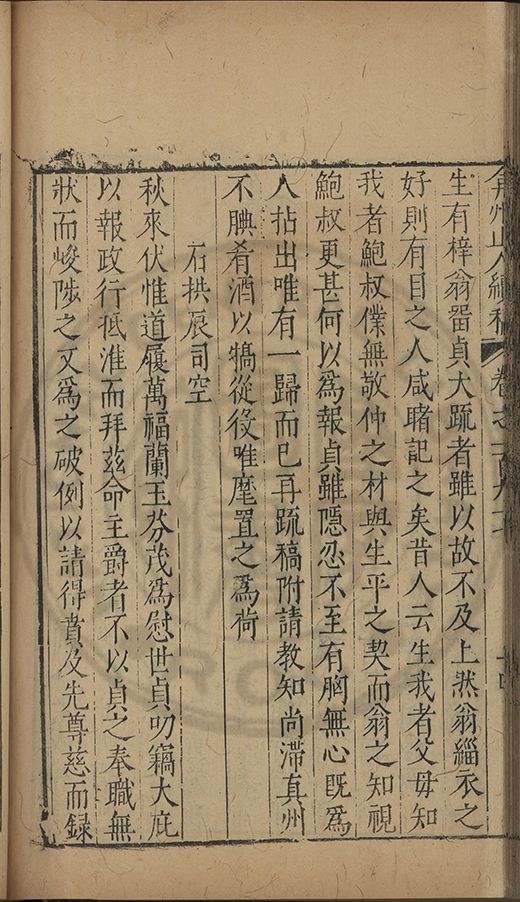 弇州山人續稿 卷之一百九十 十四
生有梓翁畱貞大疏者雖以故不及上然翁緇衣之
好則有目之人咸睹記之矣昔人云生我者父母知
我者鮑叔僕無敬仲之材與生平之契而翁之知視
鮑叔更甚何以爲報貞雖隱忍不至有胸無心旣爲
人拈出唯有一歸而已再疏稿附請教知尚滯真州
不腆肴酒以犒從役唯麾置之爲荷
石拱辰司空
秋來伏惟道履萬福蘭玉芬茂爲慰世貞叨竊大庇
以報政行抵淮而拜茲命主爵者不以貞之奉職無
狀而峻陟之又爲之破例以請得賁及先尊慈而録